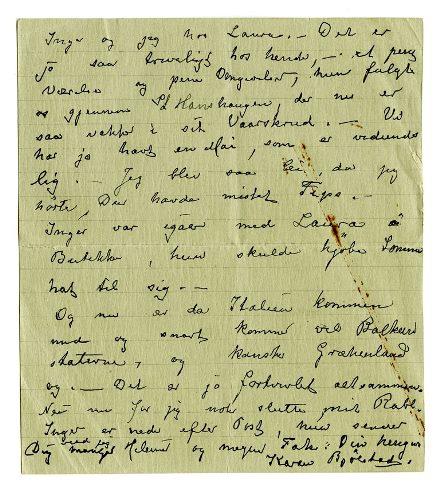 Inger og jeg hos Laura. – Det er
jo saa triveligt hos hende, – et pent
Værelse og pene Omgivelser, hun fulgte
os gjennem St Hanshaugen, der nu er
saa vakker i sit Vaarskrud. – Vi
har jo havt en Mai, som er vidunder
lig. – Jeg blev saa lei, da jeg
hørte, Du havde mistet Fips. –
Inger var igaar med Laura i
Butikke, hun skulde kjøbe Sommer
hat til sig. –
Og nu er da Italien kommen
med og snart kommer vel Balkan
staterne, og kanske Grækenland
og. – Det er jo fortvivlet altsammen.
Nei nu faar jeg nok slutte mit Rabl.
Inger er nede efter Post, hun sender
Dig med jeg mange Hilsner og megen Tak. Din hengivne
Karen Bjølstad.